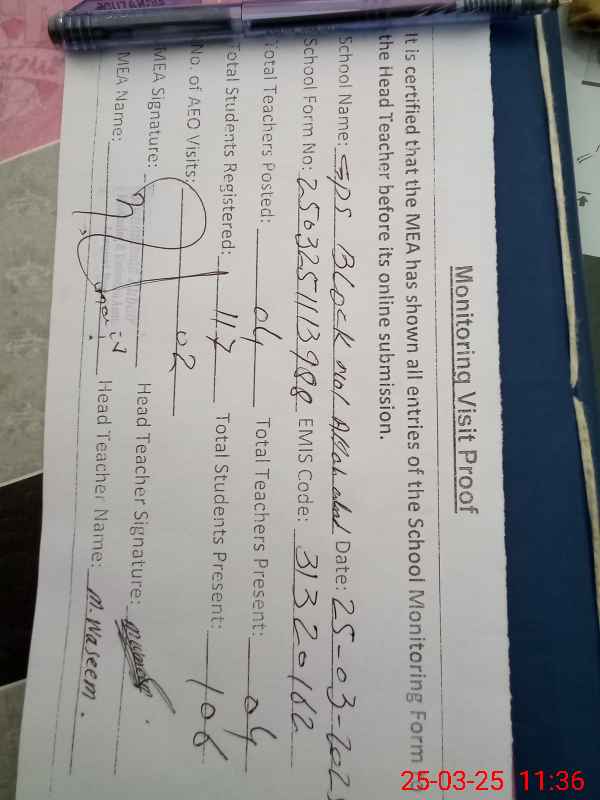 Monitoring Visit Proof
It is certified that the MEA has shown all entries of the School Monitoring Form
the Head Teacher before its online submission.
School Name: GPS Block No1 Allahabad Date: 25-03-202
School Form No: 250325111398 EMIS Code: 31320162
Total Teachers Posted: 04 Total Teachers Present: 04
Total Students Registered: 117 Total Students Present: 106
No. of AEO Visits: 02
MEA Signature: Head Teacher Signature:
MEA Name: Head Teacher Name: M. Waseem.
25-03-25 11:36